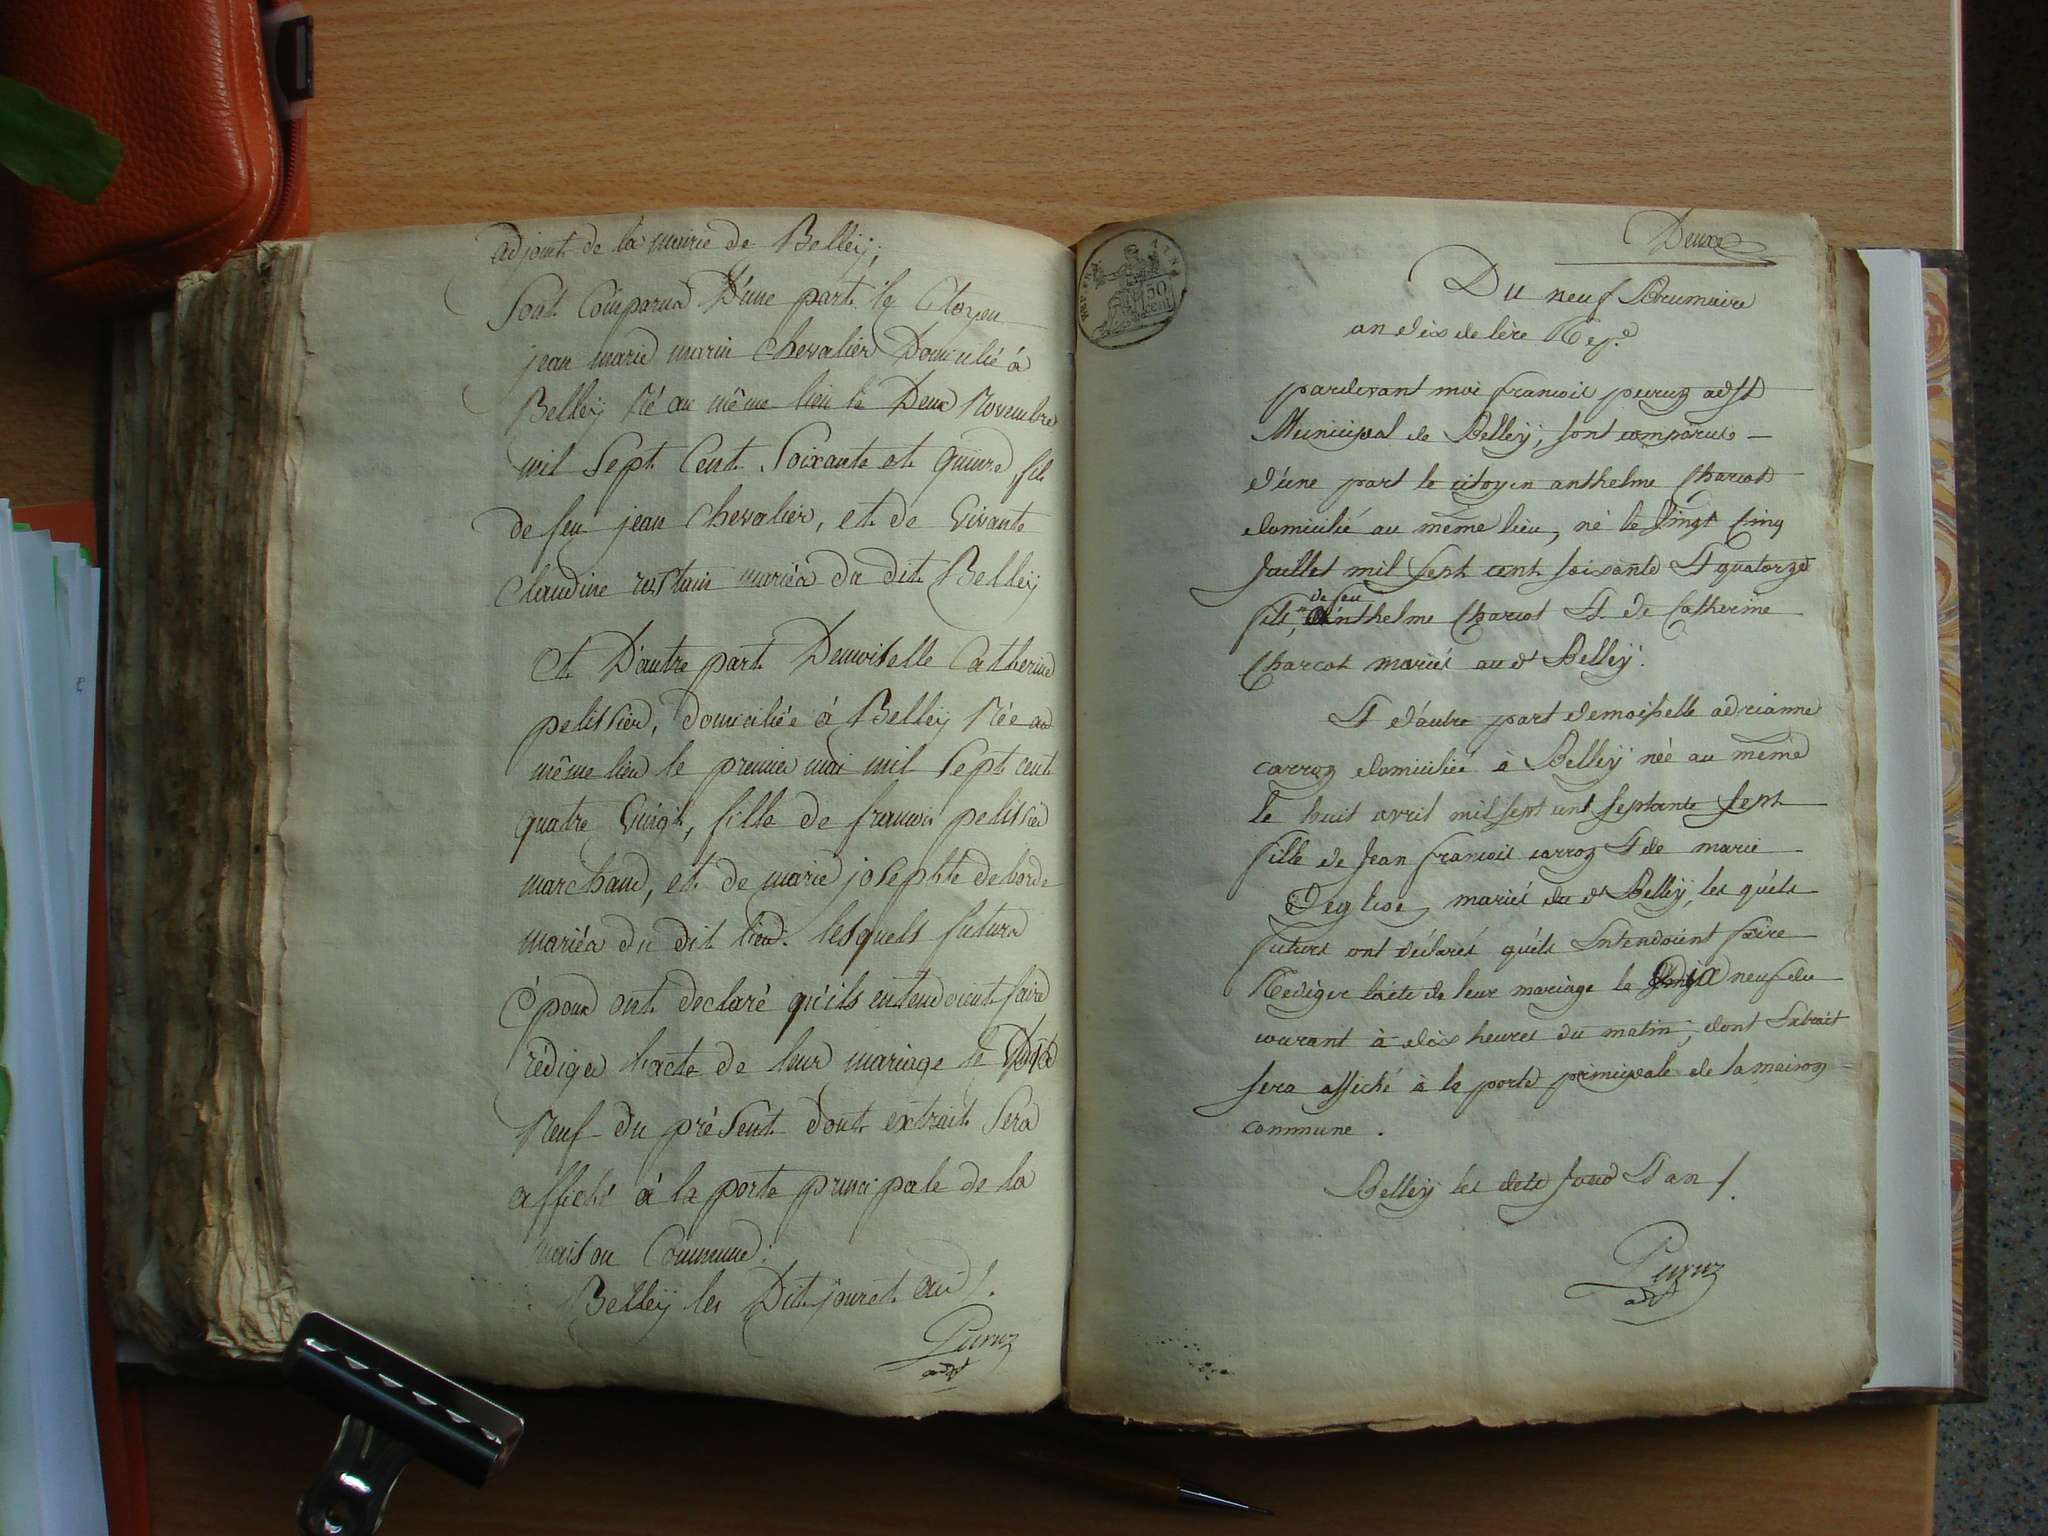 adjoint de la mairie de Belleÿ;
Sont Comparus D'une part le Citoyen
jean marie marin Chevalier Domicilié à
Belleÿ Né au même lieu le Deux Novembre
mil Sept Cent Soixante et quinze, fils
de feu jean Chevalier, et de Vivante
Claudine rostain mariés du dit Belleÿ
Et D'autre part Demoiselle Catherine
pelissier, domiciliée à Belleÿ Née au
même lieu le premier mai mil Sept cent
quatre Vingt, fille de francois pelissier
marchand, et de marie josephte deborde
mariés du dit lieu. lesquels futurs
Époux ont declaré qu'ils entendoient faire
rédiger l'acte de leur mariage le Dix
Neuf du présent dont extrait Sera
affiché à la porte principale de la
maison Commune.
Belleÿ les Dit jour et an /.
Peruz
adjt
Deux
Du neuf Brumaire
an dix de lère Rep.e
50
cent
pardevant moi francois peruz adjt
Municipal de Belleÿ, sont comparus
d'une part le citoyen anthelme Charcot
domicilié au même lieu, né le Vingt Cinq
Juillet mil Sept cent soixante Et quatorze
de feu
fils, anthelme Charcot Et de Catherine
Charcot mariés au dt Belleÿ.
Et d'autre part demoiselle adrianne
carroz domiciliée à Belleÿ née au même
le huit avril mil sept cent septante sept
fille de Jean francois carroz Et de marie
mariés du dt Belleÿ, les quels
futurs ont déclarés qu'ils Entendoient faire
Rediger lacte de leur mariage le Dix neuf du
courant à dix heures du matin, dont Extrait
sera affiché à la porte principale de la maison
commune.
Belleÿ les dits Jour Et an /.
Peruz
adjt